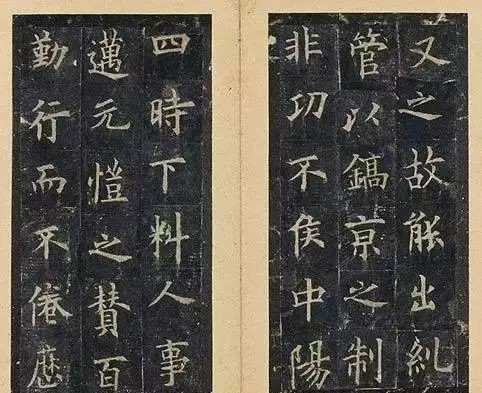 又之故能出糺
管以鎬京之制
非㓛不侯中陽
四時下料人事
邁元愷之賛百
勤行而不倦歴